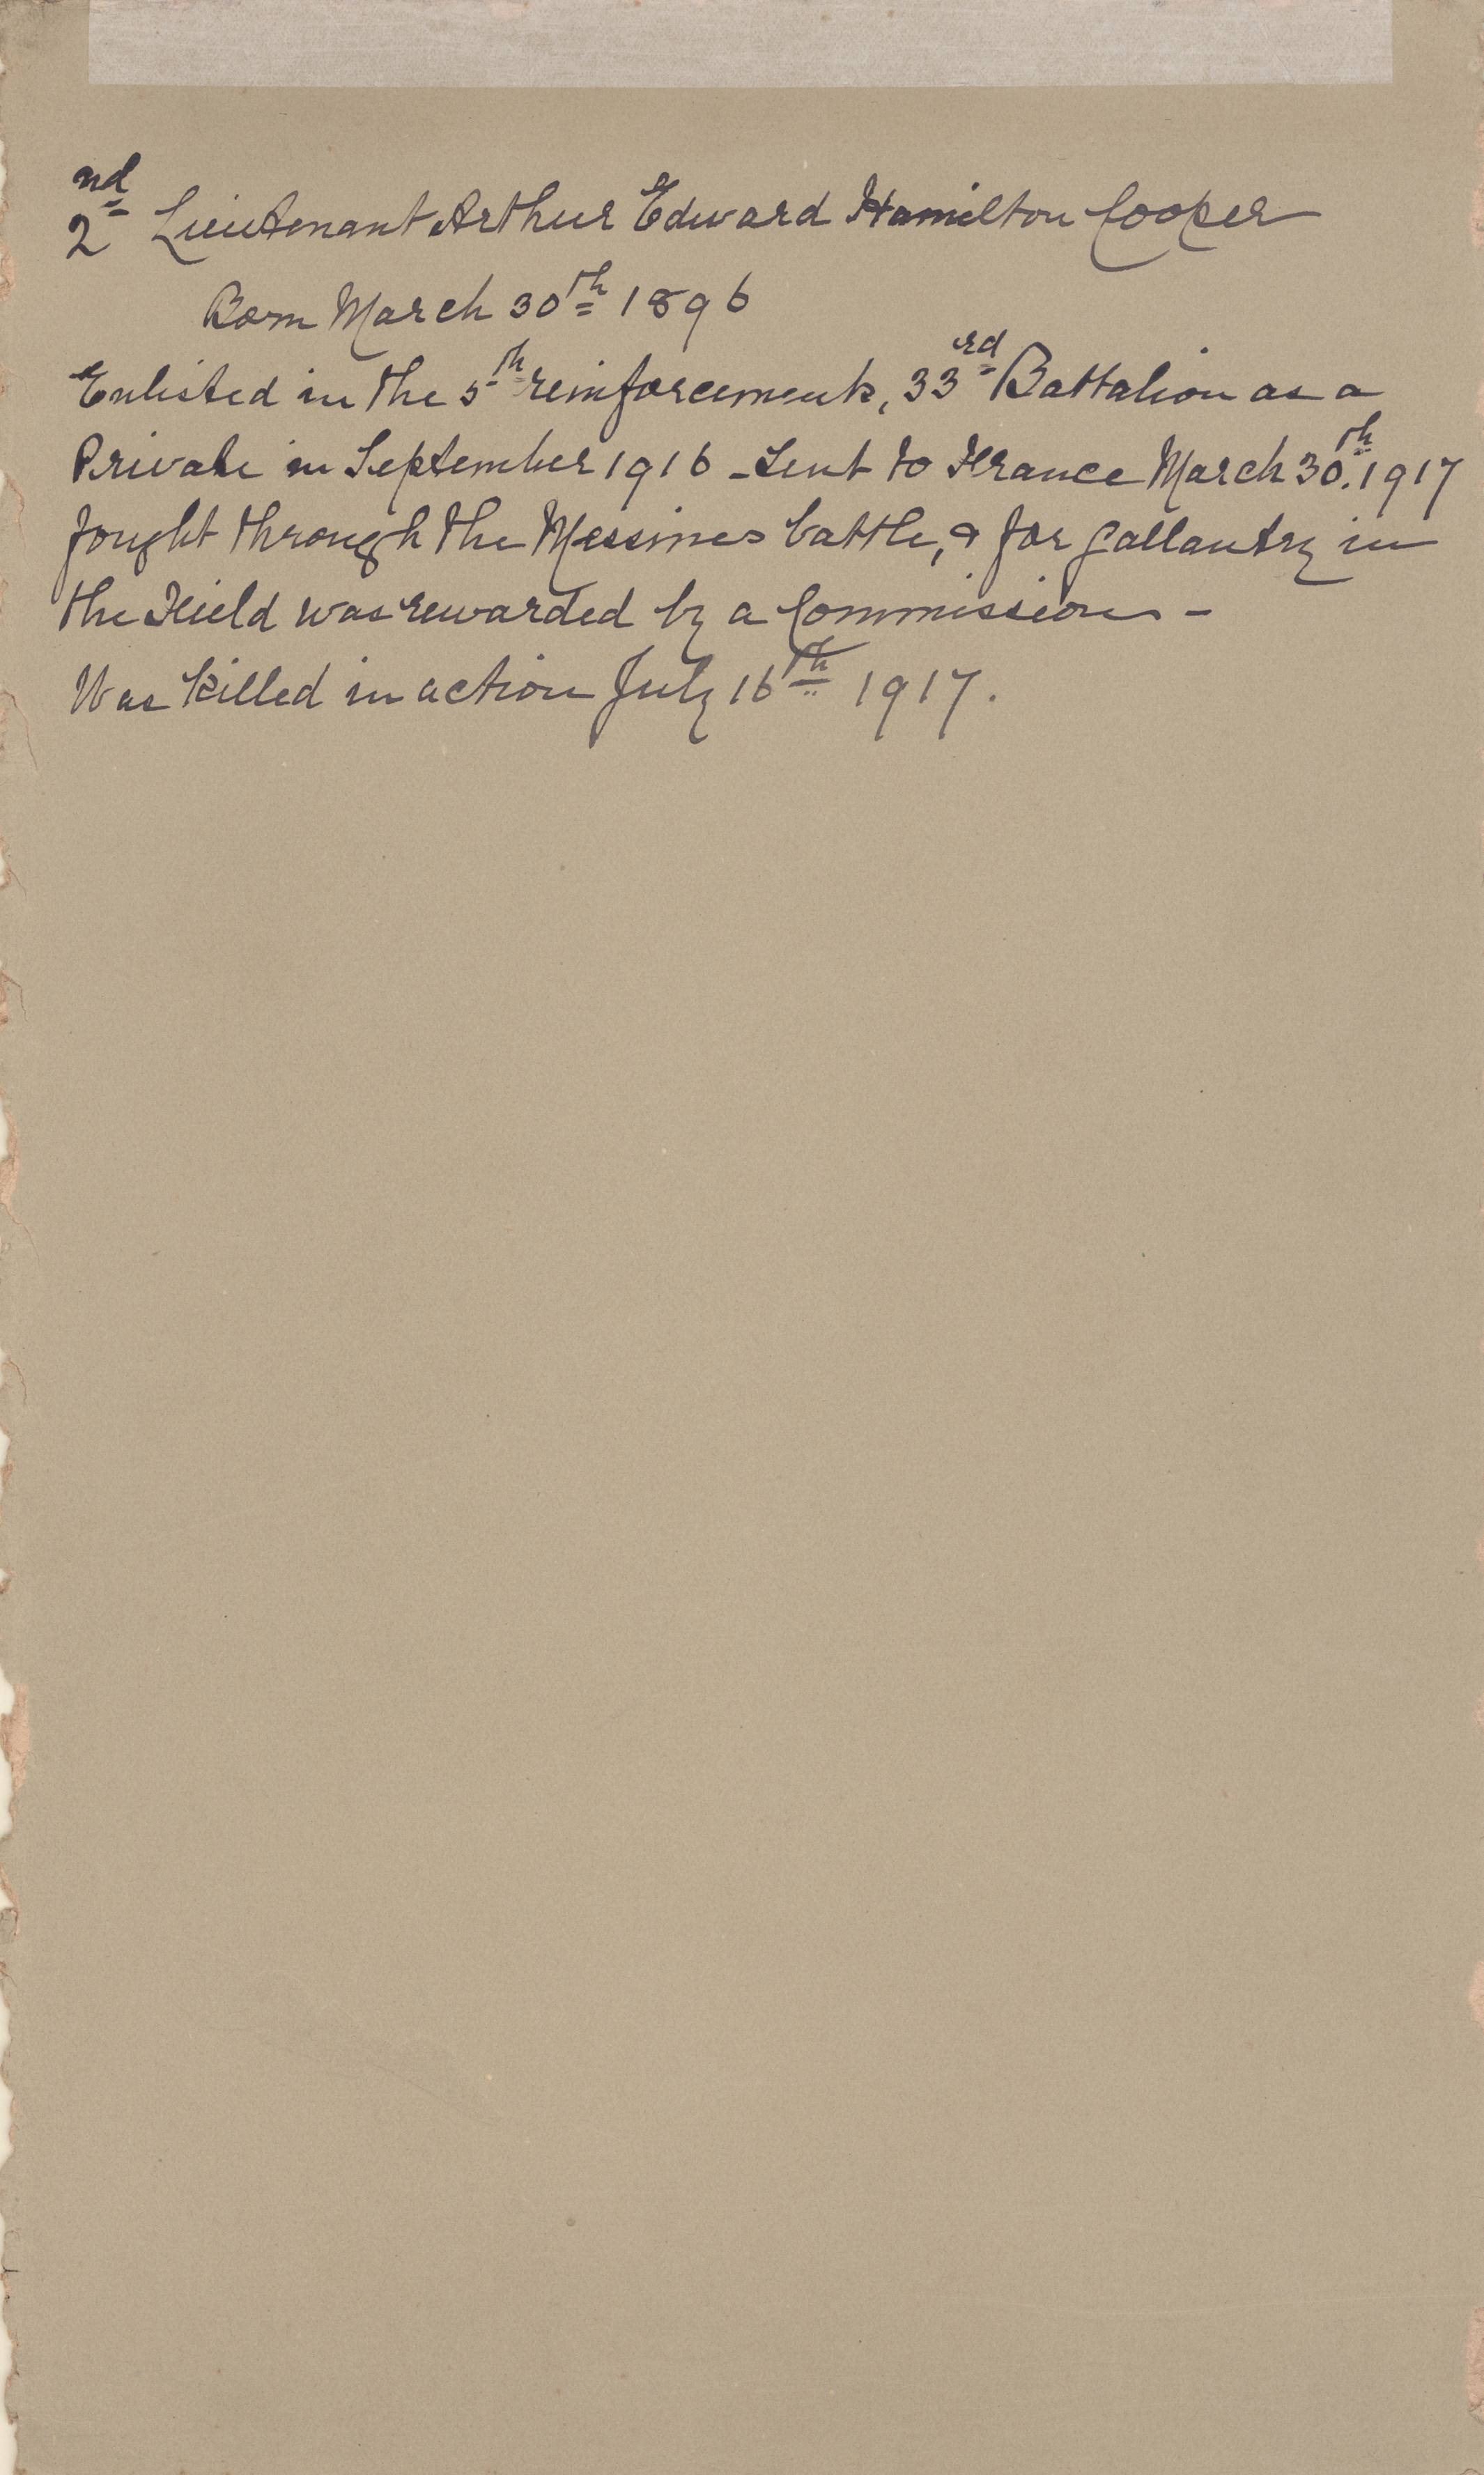 2nd Lieutenant Arthur Edward Hamilton Cooper
Born March 30th 1896
Enlisted in the 5th reinforcements, 33rd Battalion as a
Private in September 1916 - Sent to France March 30th. 1917
fought through the Messines battle, & for gallantry in
the Field was rewarded by a Commission -
Was killed in action July 16th 1917.